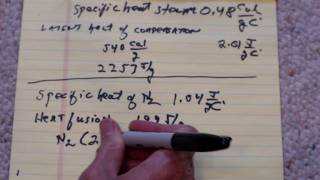 Specific heat steam 0.48 cal/g°C.
LATENT heat of CONDENSATION
540 cal/g 2.01 J/g°C
2257 J/g
Specific heat of N2 1.04 J/g°C.
Heat fusion
N2 (2